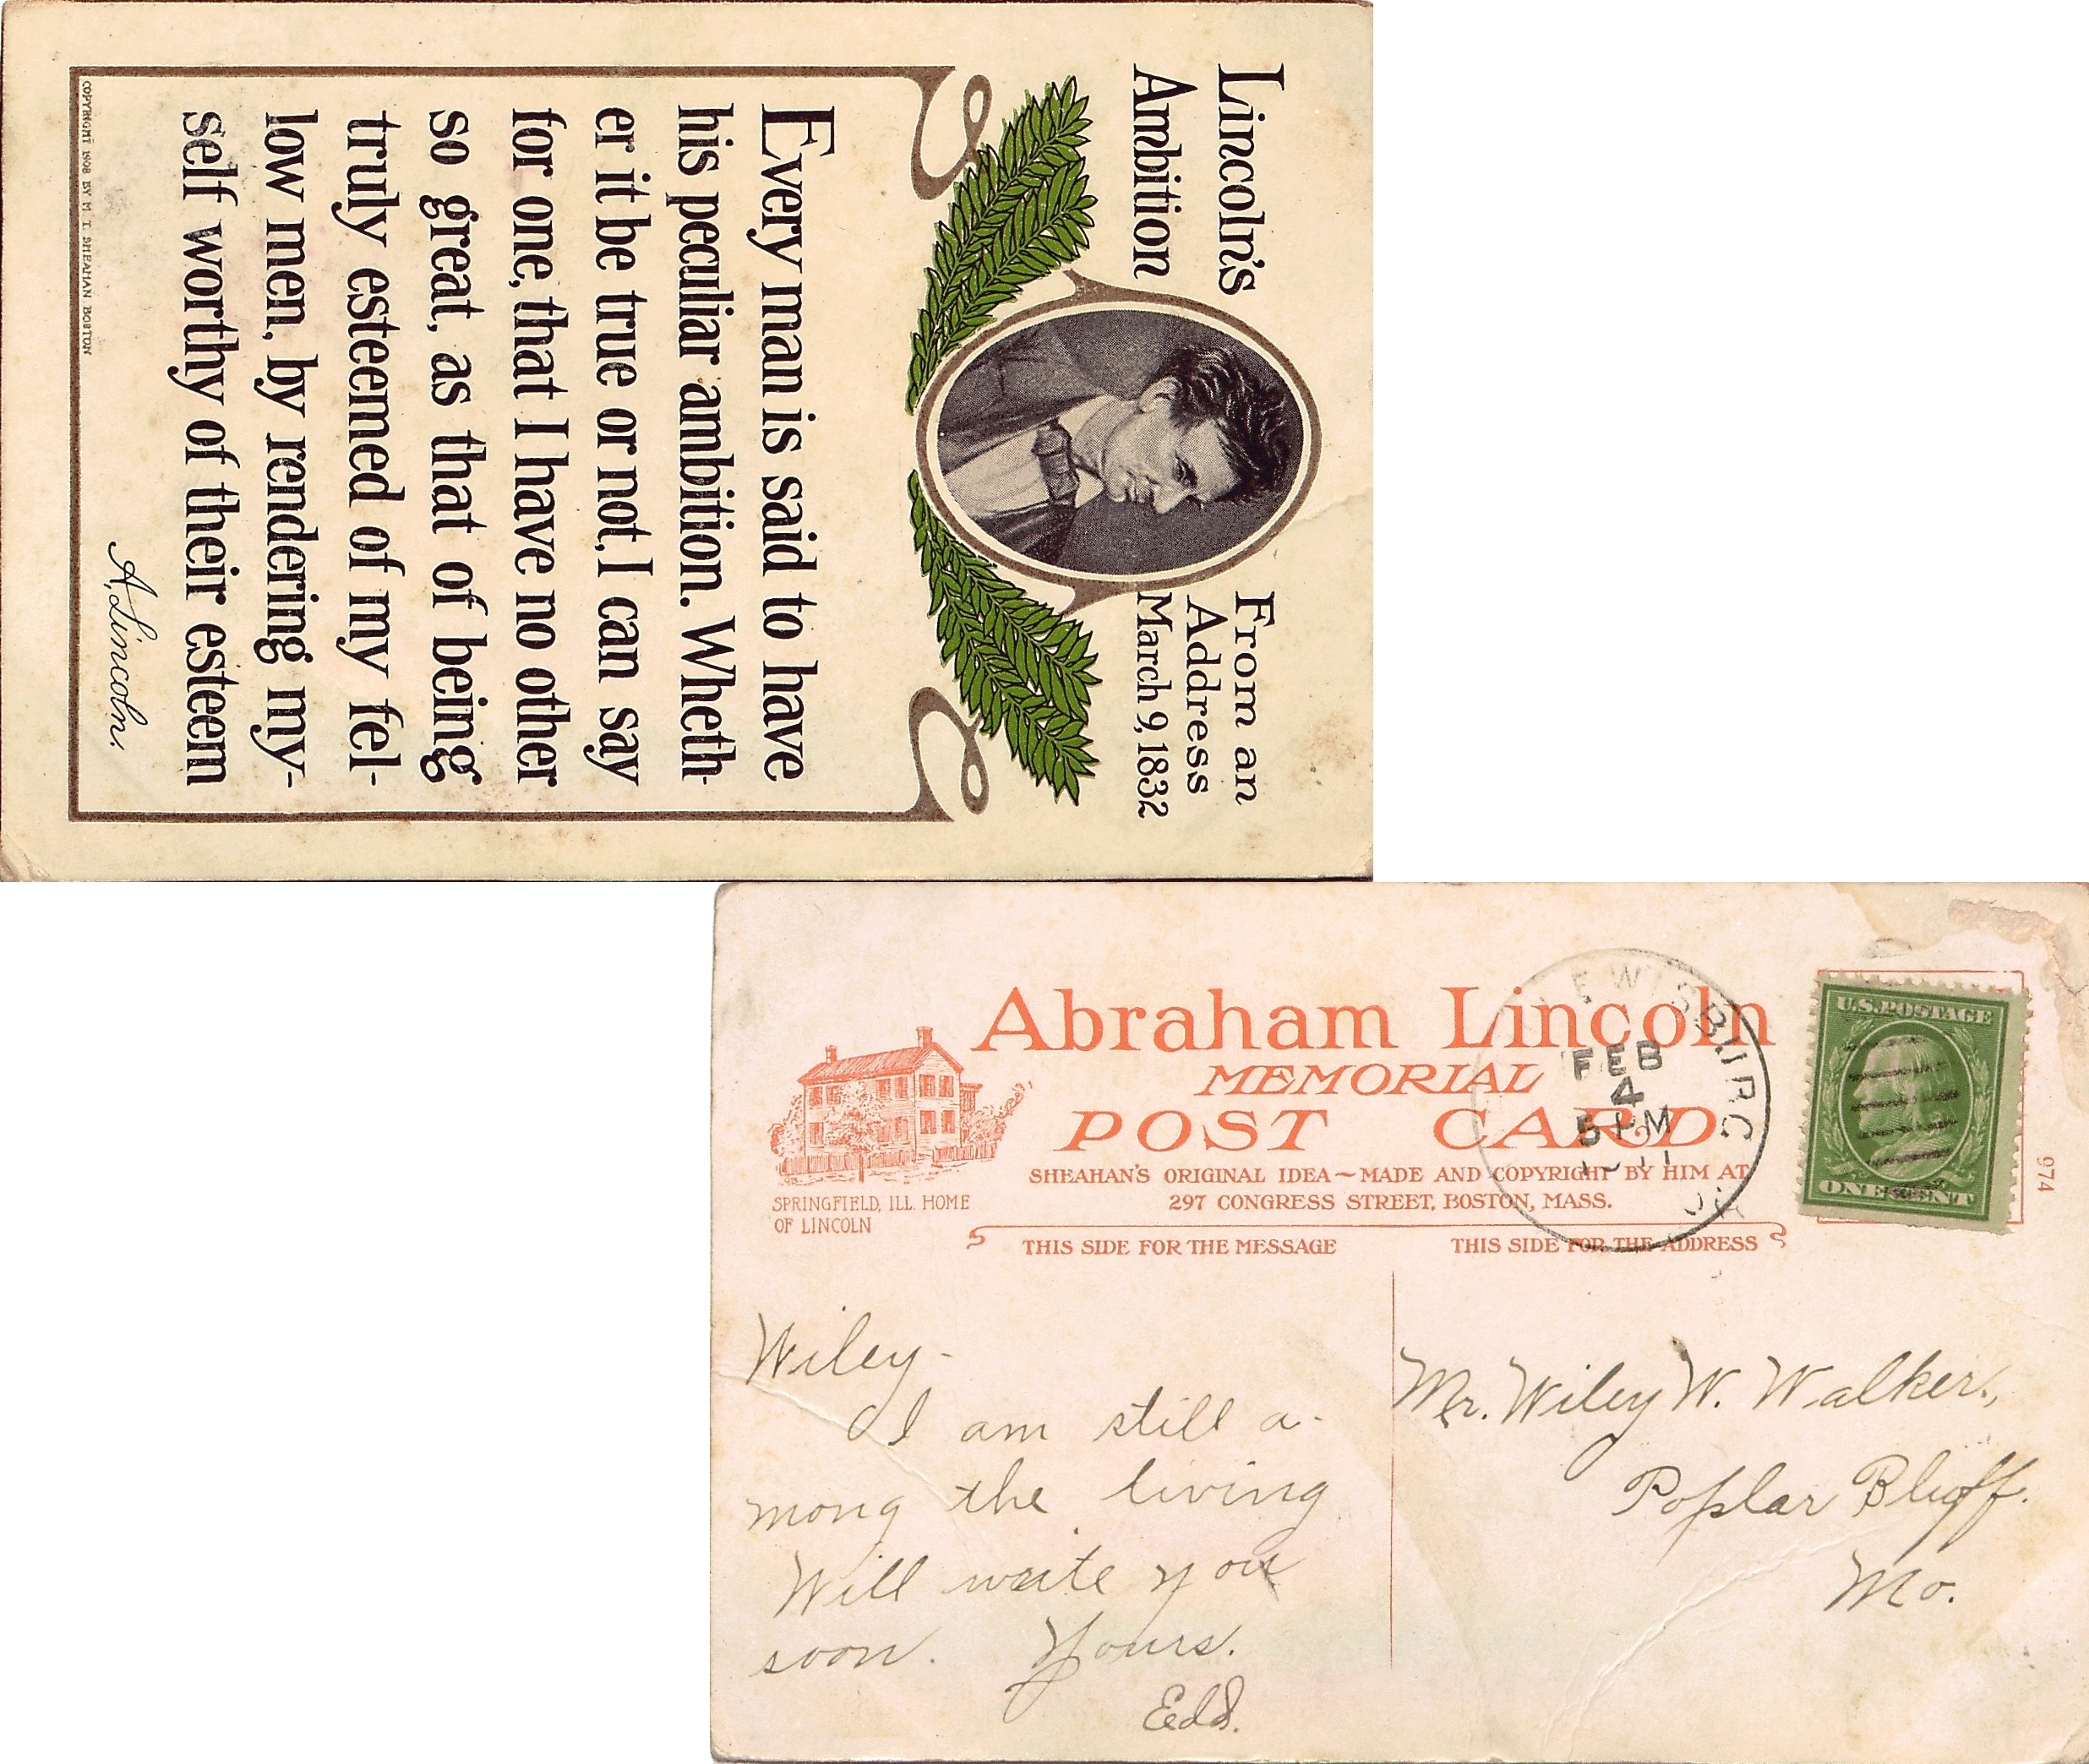 Lincoln's
Ambition
From an
Address
March 9, 1832
Every man is said to have
his peculiar ambition. Wheth-
er it be true or not, I can say
for one, that I have no other
so great, as that of being
truly esteemed of my fel-
low men, by rendering my-
self worthy of their esteem
A. Lincoln.
COPYRIGHT 1908 BY M. T. SHEAHAN BOSTON
Abraham Lincoln
MEMORIAL
POST CARD
SHEAHAN'S ORIGINAL IDEA~MADE AND COPYRIGHT BY HIM AT
297 CONGRESS STREET, BOSTON, MASS.
SPRINGFIELD, ILL. HOME
OF LINCOLN
THIS SIDE FOR THE MESSAGE
THIS SIDE FOR THE ADDRESS
LEWISBURG
FEB
4
5 PM
U.S. POSTAGE
ONE CENT
974
Wiley-
I am still a-
mong the living
Will write you
soon. Yours.
Edd.
Mr. Wiley W. Walker,
Poplar Bluff.
Mo.